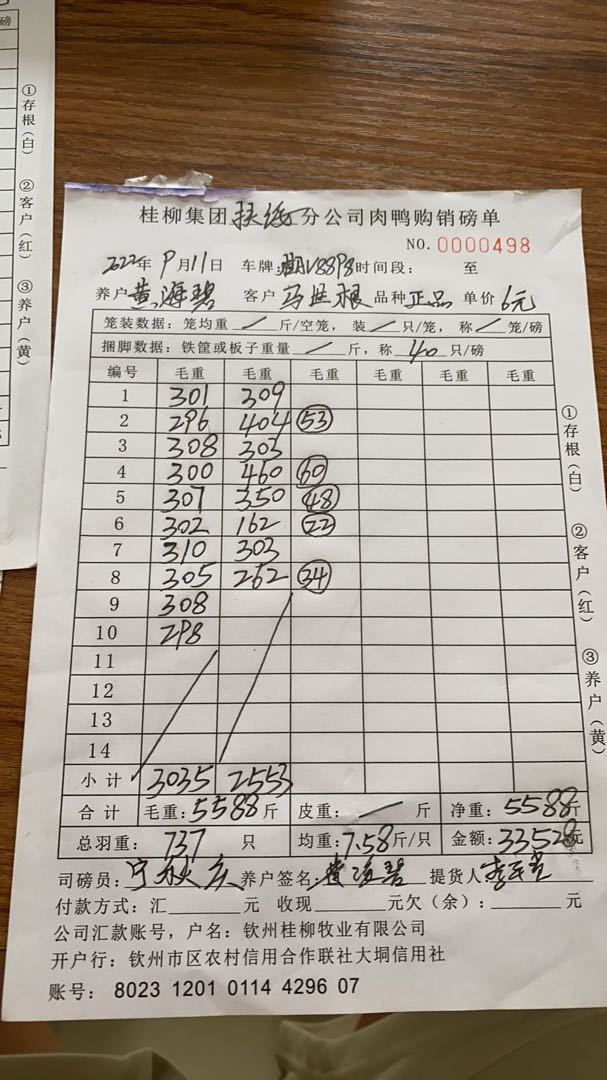 磅
①存根(白) ②客户(红) ③养户(黄)
桂柳集团扶绥分公司肉鸭购销磅单
NO. 0000498
2022年9月11日 车牌: V8898 时间段: 至
养户 黄海碧 客户 马世根 品种 正品 单价 6元
笼装数据: 笼均重 / 斤/空笼, 装 / 只/笼, 称 / 笼/磅
捆脚数据: 铁筐或板子重量 / 斤, 称 40 只/磅
编号 毛重 毛重 毛重 毛重 毛重 毛重
1 301 309
2 296 404 53
3 308 303
4 300 460 60
5 307 350 48
6 302 162 22
7 310 303
8 305 262 34
9 308
10 298
11
12
13
14
小计 3035 2553
合计 毛重: 5588斤 皮重: / 斤 净重: 5588斤
总羽重: 737 只 均重: 7.58斤/只 金额: 33528元
司磅员: 宁 庆 养户签名: 黄海碧 提货人: 李
付款方式: 汇 元 收现 元欠(余): 元
公司汇款账号, 户名: 钦州桂柳牧业有限公司
开户行: 钦州市区农村信用合作联社大垌信用社
账号: 8023 1201 0114 4296 07
①存根(白) ②客户(红) ③养户(黄)